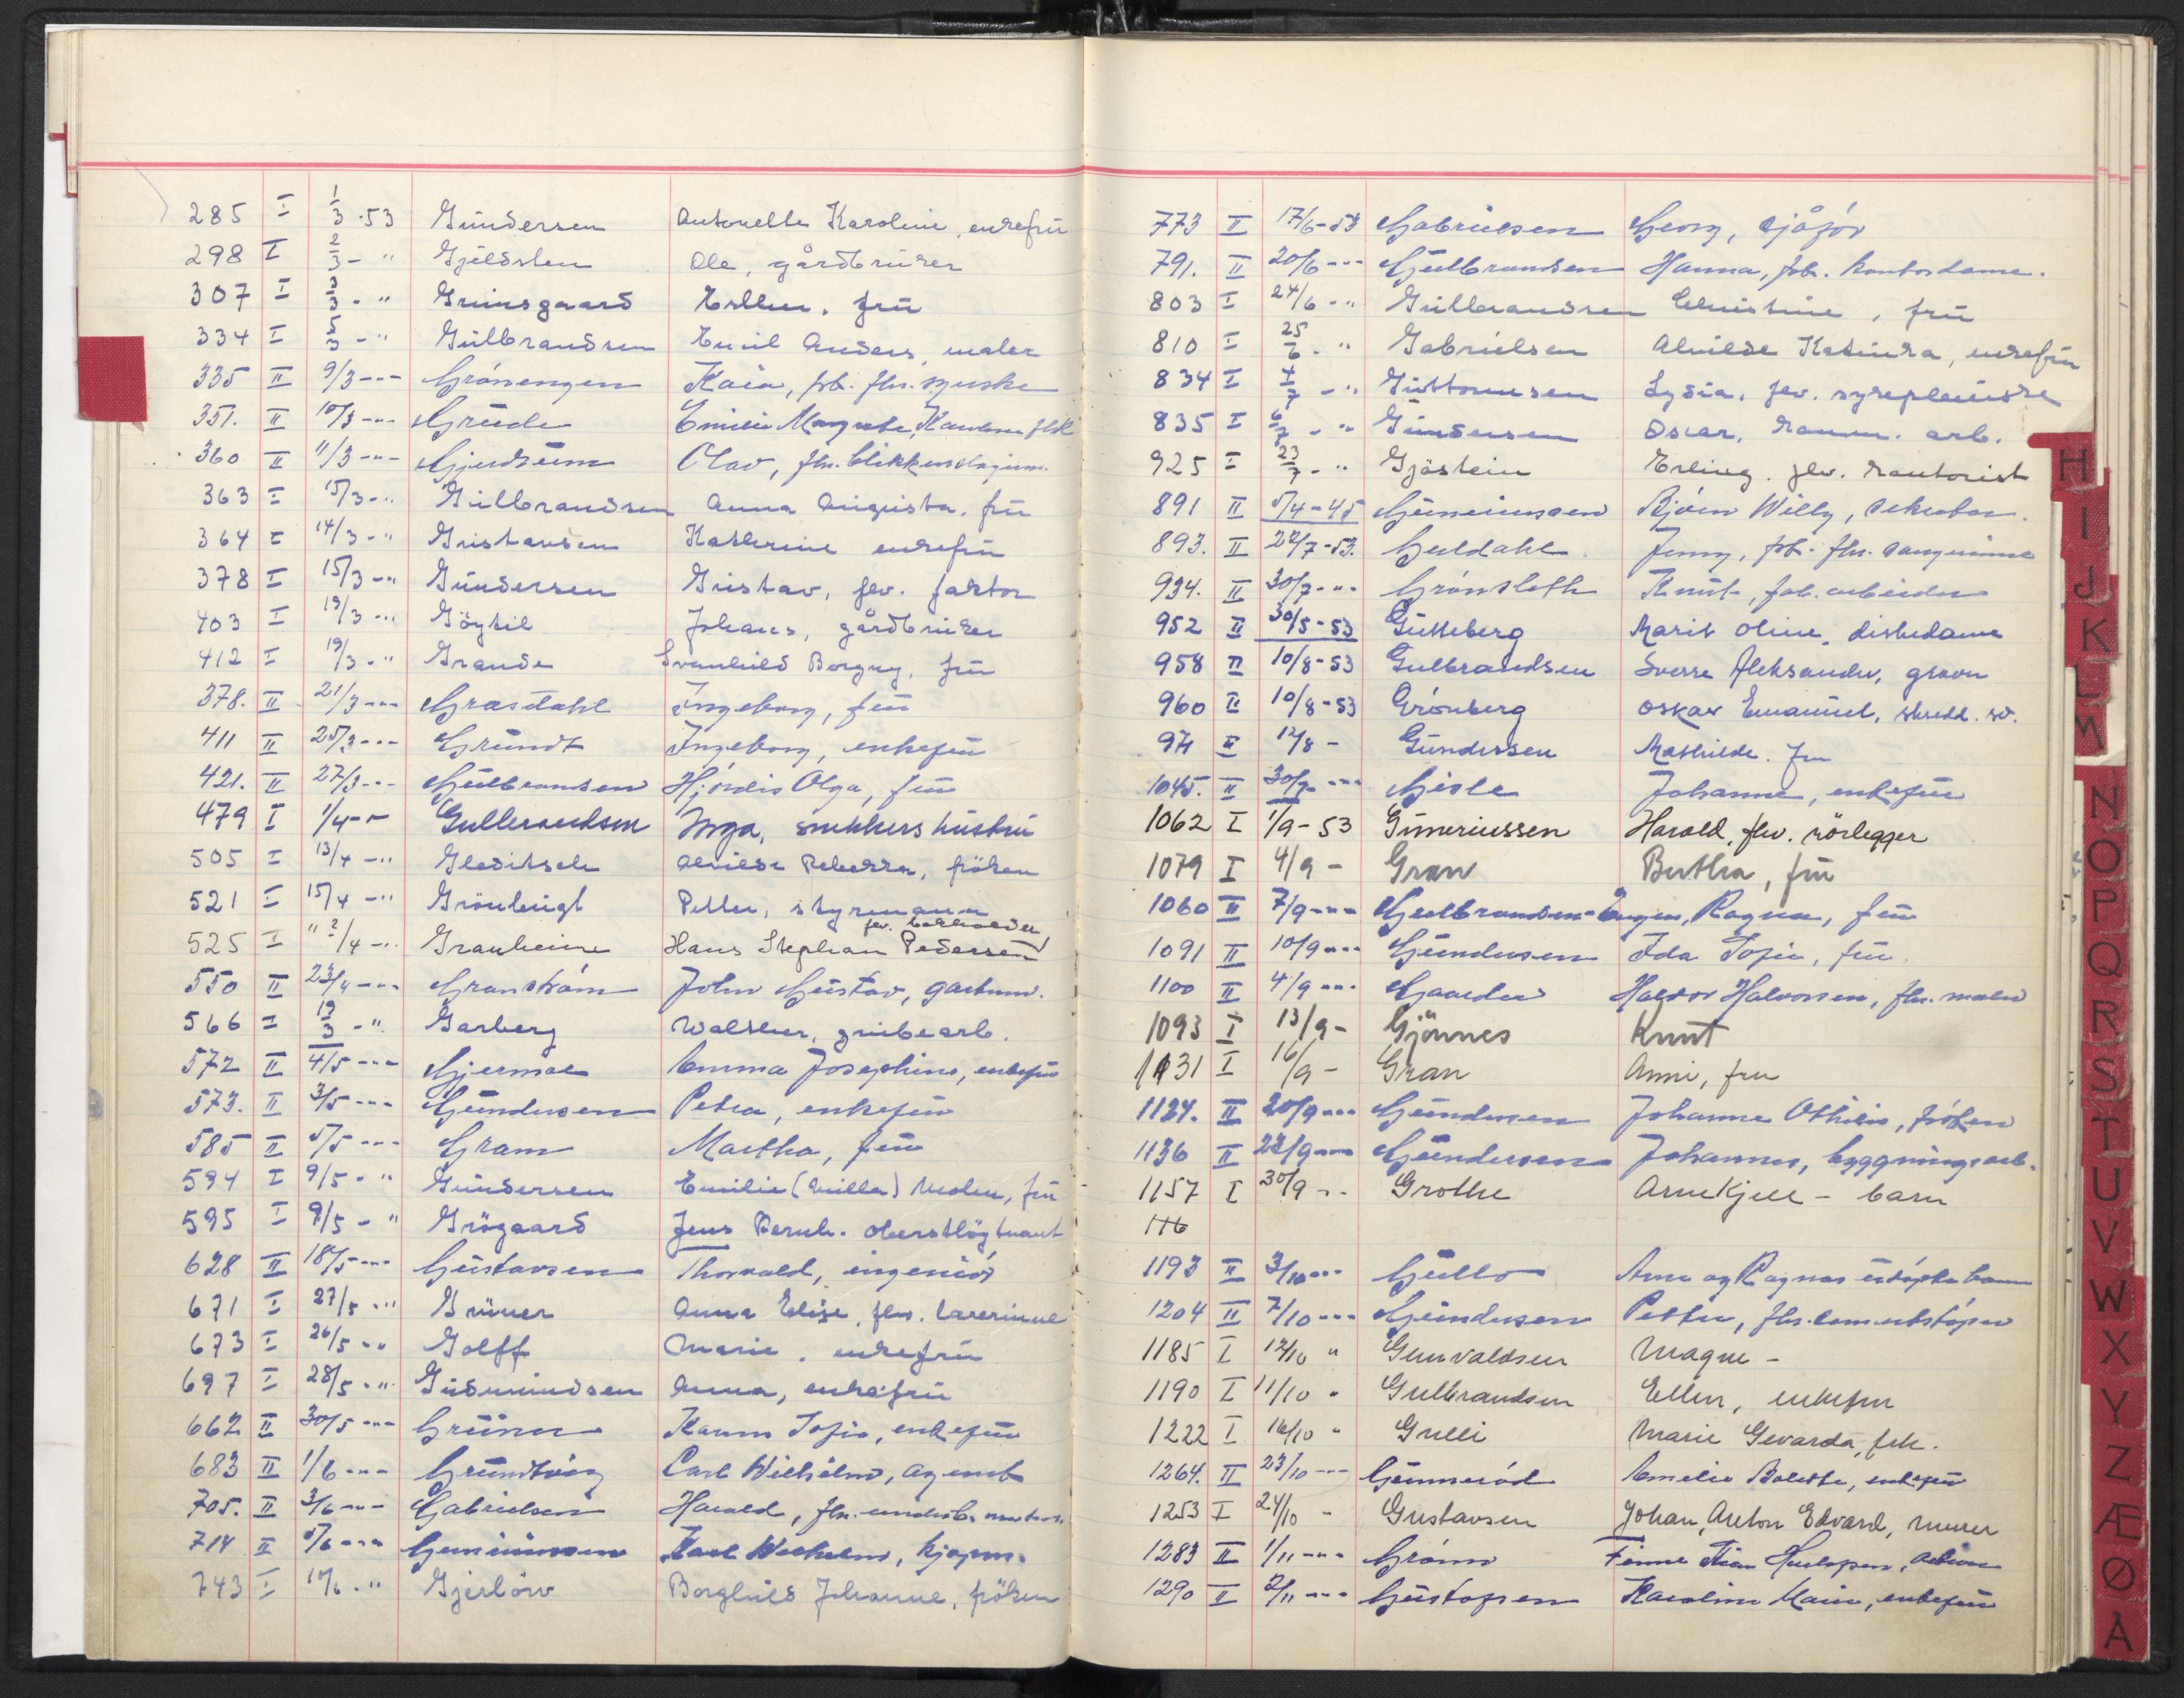 285 I 1/3-53 Gundersen Antonette Karoline, enkefru
298 I 2/3-" Gjeldsten Ole, gårdbruker
307 I 3/3-" Grimsgaard Esther, fru
334 I 5/3-" Gulbrandsen Emil Anders, maler
335 II 9/3-"- Grönengen Kaia, fhv. syerske
351. II 10/3-"- Grude Emilie Margrete
360 II 11/3-"- Gjerdrum Olav, fhv. blikkenslagerm.
363 I 15/3-" Gulbrandsen Anna Augusta, fru
364 I 14/3-" Gustavsen Kathrine enkefru
378 I 15/3-" Gundersen Gustav, fev. faktor
403 I 19/3-" Göytil Johans, gårdbruker
412 I 19/3-" Grande Svanhild Borgny, fru
378. II 21/3-"- Grasdahl Ingeborg, fru
411 II 25/3-"- Grundt Ingeborg, enkefru
421. II 27/3-"- Gulbrandsen Hjördis Olga, fru
479 I 1/4-"- Gulbrandsen Inga, snekkers hustru
505 I 13/4-" Gleditsch Alvilde Rebekka, fröken
521 I 15/4-" Grönligt Petter, styrmann
fev. bokholder
525 I "2/4-" Grauheim Hans Stephan Pedersen
550 II 23/4-"- Granström John Gustav, gartner.
566 I 19/3-" Garberg Walther, grubearb.
572 II 4/5-"- Gjermoe Emma Josephine, enkefru
573. II 3/5-"- Gundersen Petra, enkefru
585 II 5/5-"- Gram Martha, fru
594 I 9/5-" Gundersen Emilie (Milla) fru
595 I 9/5-" Grögaard Jens Bernh. oberstlöytnant
628 II 18/5-"- Gustavsen Thorvald, ingeniör
671 I 27/5-" Grüner Anna Elise, fhv. lærerinne
673 I 26/5-" Golff Marie, enkefru
697 I 28/5-" Gudmundsen Anna, enkefru
662 II 30/5-"- Grüner Karen Sofie, enkefru
683 II 1/6-"- Grundtvig Carl Wilhelm, agent
705. II 3/6-"- Gabrielsen Harald, fhv.
714 II 5/6-"- Karl Wilhelm, kjöpm.
743 I 10/6-" Gjerlöw Borghild Johanne, fröken
773 II 17/6-53 Gabrielsen Georg, sjåför
791. II 20/6-"- Gulbrandsen Hanna, kontordame.
803 I 24/6-" Gulbrandsen Christine, fru
810 I 25/6-" Gabrielsen Alvilde Katinka, enkefru
834 I 4/7-" Guttormsen Lydia, fev. sykepleierske
835 I 6/7-" Gundersen Oscar, komm. arb.
925 I 23/7-" Gjöstein Erling, fev. kontorist
891 II 5/4-45 Björn Willy
893. II 22/7-53. Guldahl Jenny, fhv. sangerinne
934. II 30/7-"- Grönsleth Knut, fab. arbeider
952 II 30/5-53 Gutteberg Marit Oline, diskedame
958 II 10/8-53 Gulbrandsen Sverre Aleksander, gravør
960 II 10/8-53 Grönberg Oskar Emanuel, skredd. sv.
971 II 12/8- Gundersen Mathilde. fru
1045. II 30/7-"- Gisle Johanne, enkefru
1062 I 1/9-53 Gumeriussen Harald, fhv. rörlegger
1079 I 4/9- Gran Berthea, fru
1060 II 7/9-"- Gulbrandsen-Engen, Ragna, fru
1091 II 10/9-"- Gundersen Ida Sofie, fru
1100 II 4/9-"- Gaarder Haldor Halvorsen, fhv. maler
1093 I 13/9- Gjönnes Knut
1131 I 16/9- Gran Anni, fru
1124. II 20/9-"- Gundersen Johanne Othilie, fröken
1136 II 22/9-"- Gundersen Johannes, bygningsarb.
1157 I 30/9-- Grothe Arne Kjell - barn
116
1193 II 3/10-"- Gullo Arne og Ragnas udöpte barn
1204 II 7/10-"- Gundersen Petter, fhv. sementstöper
1185 I 12/10 " Gunvaldsen Magne -
1190 I 11/10 " Gulbrandsen Ellen, enkefru
1222 I 16/10 " Gulli Marie Gevarda, frk.
1264. II 23/10-"- Gunneröd Amelie Bolette, enkefru
1253 I 24/10 - Gustavsen Johan, Anton Edvard, murer
1283 II 1/11-"- Gröm
1290 II 2/11-"- Gustafsen Karoline Marie, enkefru
H
I
J
K
L
M
N
O
P
Q
R
S
T
U
V
W
X
Y
Z
Æ
Ø
Å